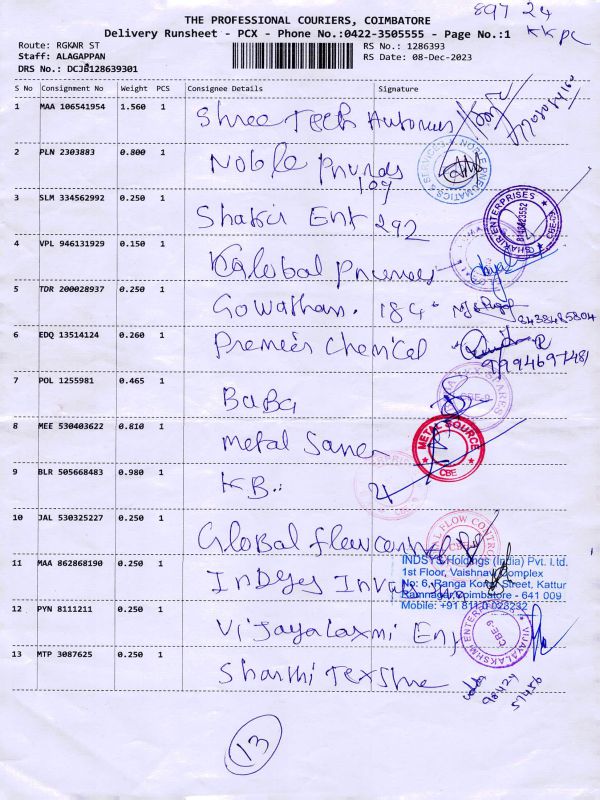 897 24
KK pc
THE PROFESSIONAL COURIERS, COIMBATORE
Delivery Runsheet - PCX - Phone No.:0422-3505555 - Page No.:1
Route: RGKNR ST
RS No.: 1286393
Staff: ALAGAPPAN
RS Date: 08-Dec-2023
DRS No.: DCJB128639301
S No Consignment No Weight PCS Consignee Details Signature
1 MAA 106541954 1.560 1 Shree Tech
2 PLN 2303883 0.800 1 Noble
NOBLE PNEUMATICS & SERVICES
3 SLM 334562992 0.250 1 Shakir Ent 292
SHAKIR ENTERPRISES CBE-09
4 VPL 946131929 0.150 1 Global
5 TDR 200028937 0.250 1 Gowtham. 184
8438485804
6 EDQ 13514124 0.260 1 Premier Chemical
9994697481
7 POL 1255981 0.465 1 BaBa
CBE-9
8 MEE 530403622 0.810 1 Metal
METAL SOURCE CBE
9 BLR 505668483 0.980 1 KB.
10 JAL 530325227 0.250 1 Global
FLOW CONTROL
11 MAA 862868190 0.250 1
INDSYS Holdings (India) Pvt. Ltd.
1st Floor, Vaishnav Complex
No: 6, Ranga Konar Street, Kattur
Ramnagar, Coimbatore - 641 009
Mobile: +91 8110 023232
12 PYN 8111211 0.250 1 Vijayalaxmi Ent
VIJAYALAKSHMI ENTERPRISES CBE-9
13 MTP 3087625 0.250 1 Shanthi
98424
57456
13